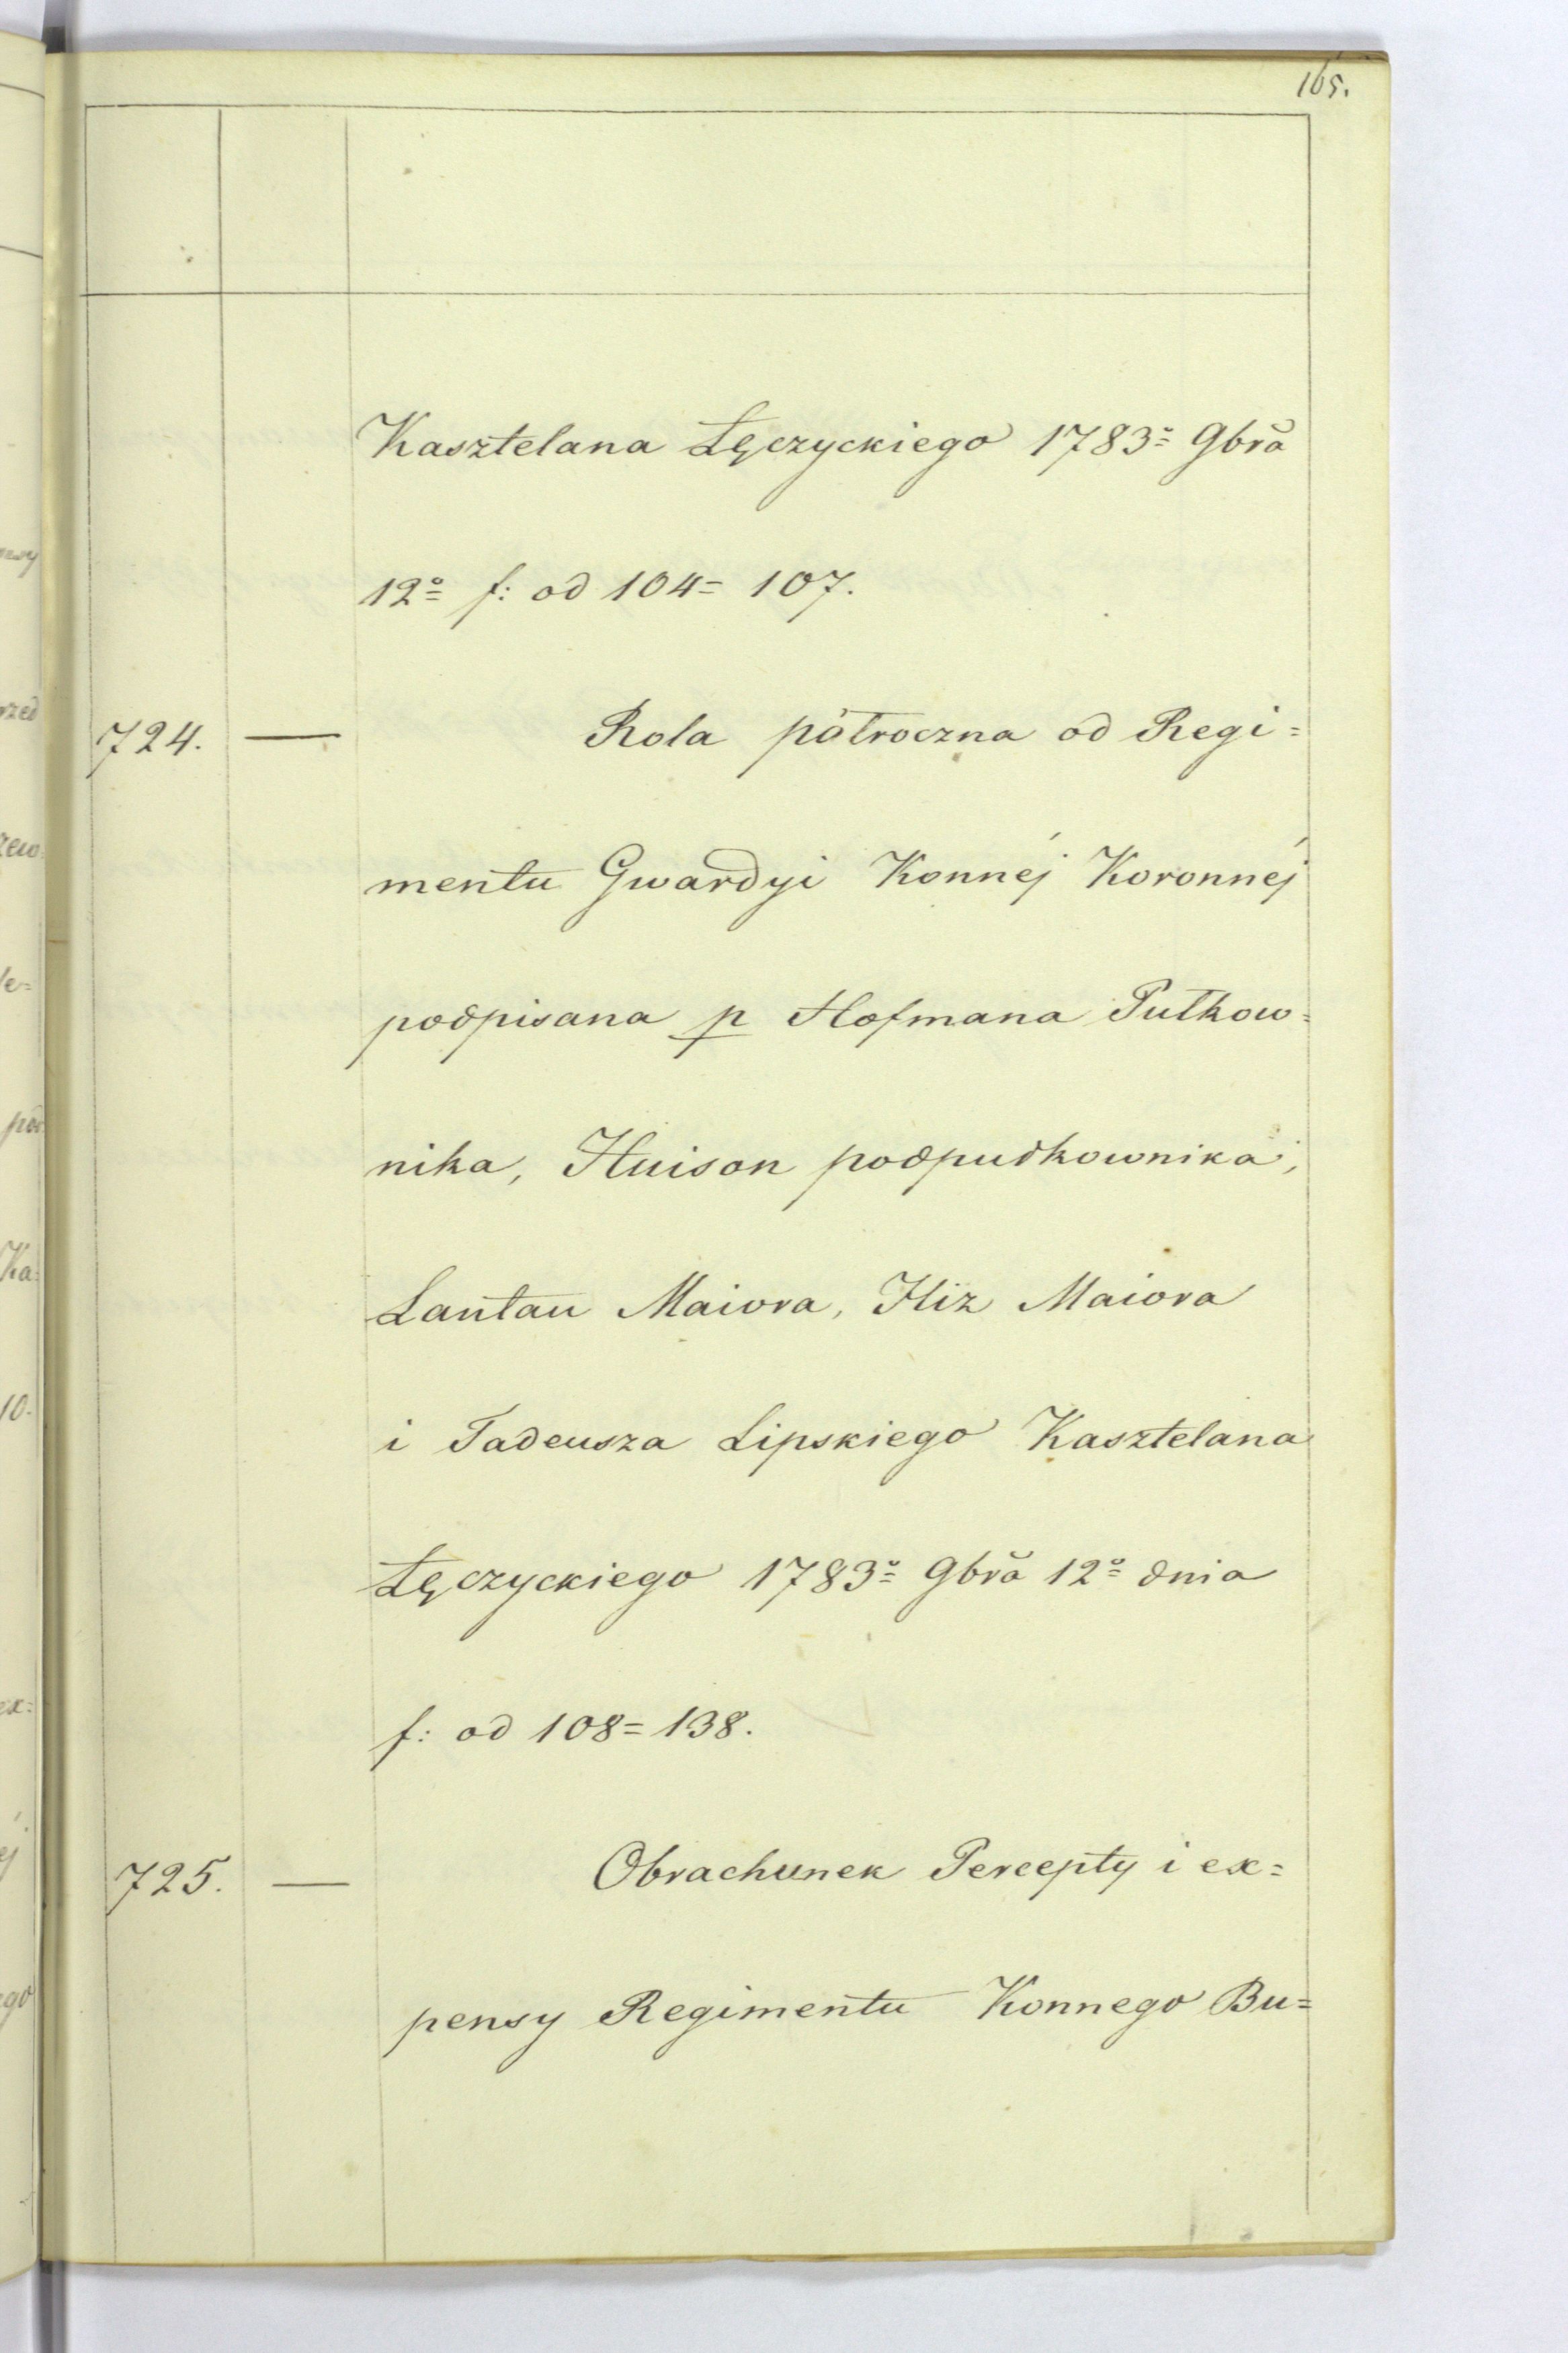 165.
Kasztelana Łęczyckiego 1783º 9bra
12º f: od 104= 107.
724. — Rola półroczna od Regi=
mentu Gwardyi Konnéj Koronnéj
podpisana p Hofmana Pułkow=
nika, Huison podpułkownika,
Lantau Maiora, Hiz Maiora
i Tadeusza Lipskiego Kasztelana
Łęczyckiego 1783º 9bra 12º dnia
f: od 108= 138.
725. — Obrachunek Percepty i ex=
pensy Regimentu Konnego Bu=